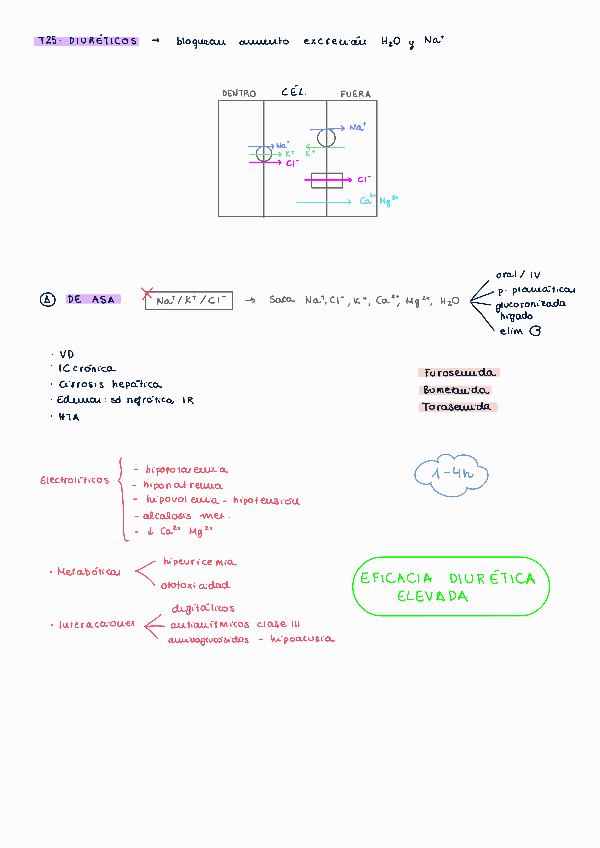 T25. DIURÉTICOS → bloquean aumento excreción H₂O y Na⁺
DENTRO CÉL. FUERA
Na⁺ K⁺ Cl⁻
K⁺ Na⁺
Cl⁻
Ca²⁺ Mg²⁺
A DE ASA Na⁺/K⁺/Cl⁻ → Saca Na⁺, Cl⁻, K⁺, Ca²⁺, Mg²⁺, H₂O
oral / IV
p. plasmáticas
glucoronizada
hígado
elim
· VD
· IC crónica
· Cirrosis hepática
· Edemas: sd nefrótico, IR
· HTA
Furosemida
Bumetanida
Torasemida
Electrolíticos
- hipopotasemia
- hiponatremia
- hipovolemia - hipotensión
- alcalosis met.
- ↓ Ca²⁺ Mg²⁺
1-4h
· Metabóticas
hiperuricemia
ototoxicidad
EFICACIA DIURÉTICA
ELEVADA
· Interacciones
digitálicos
antiarrítmicos clase III
aminoglucósidos - hipoacusia